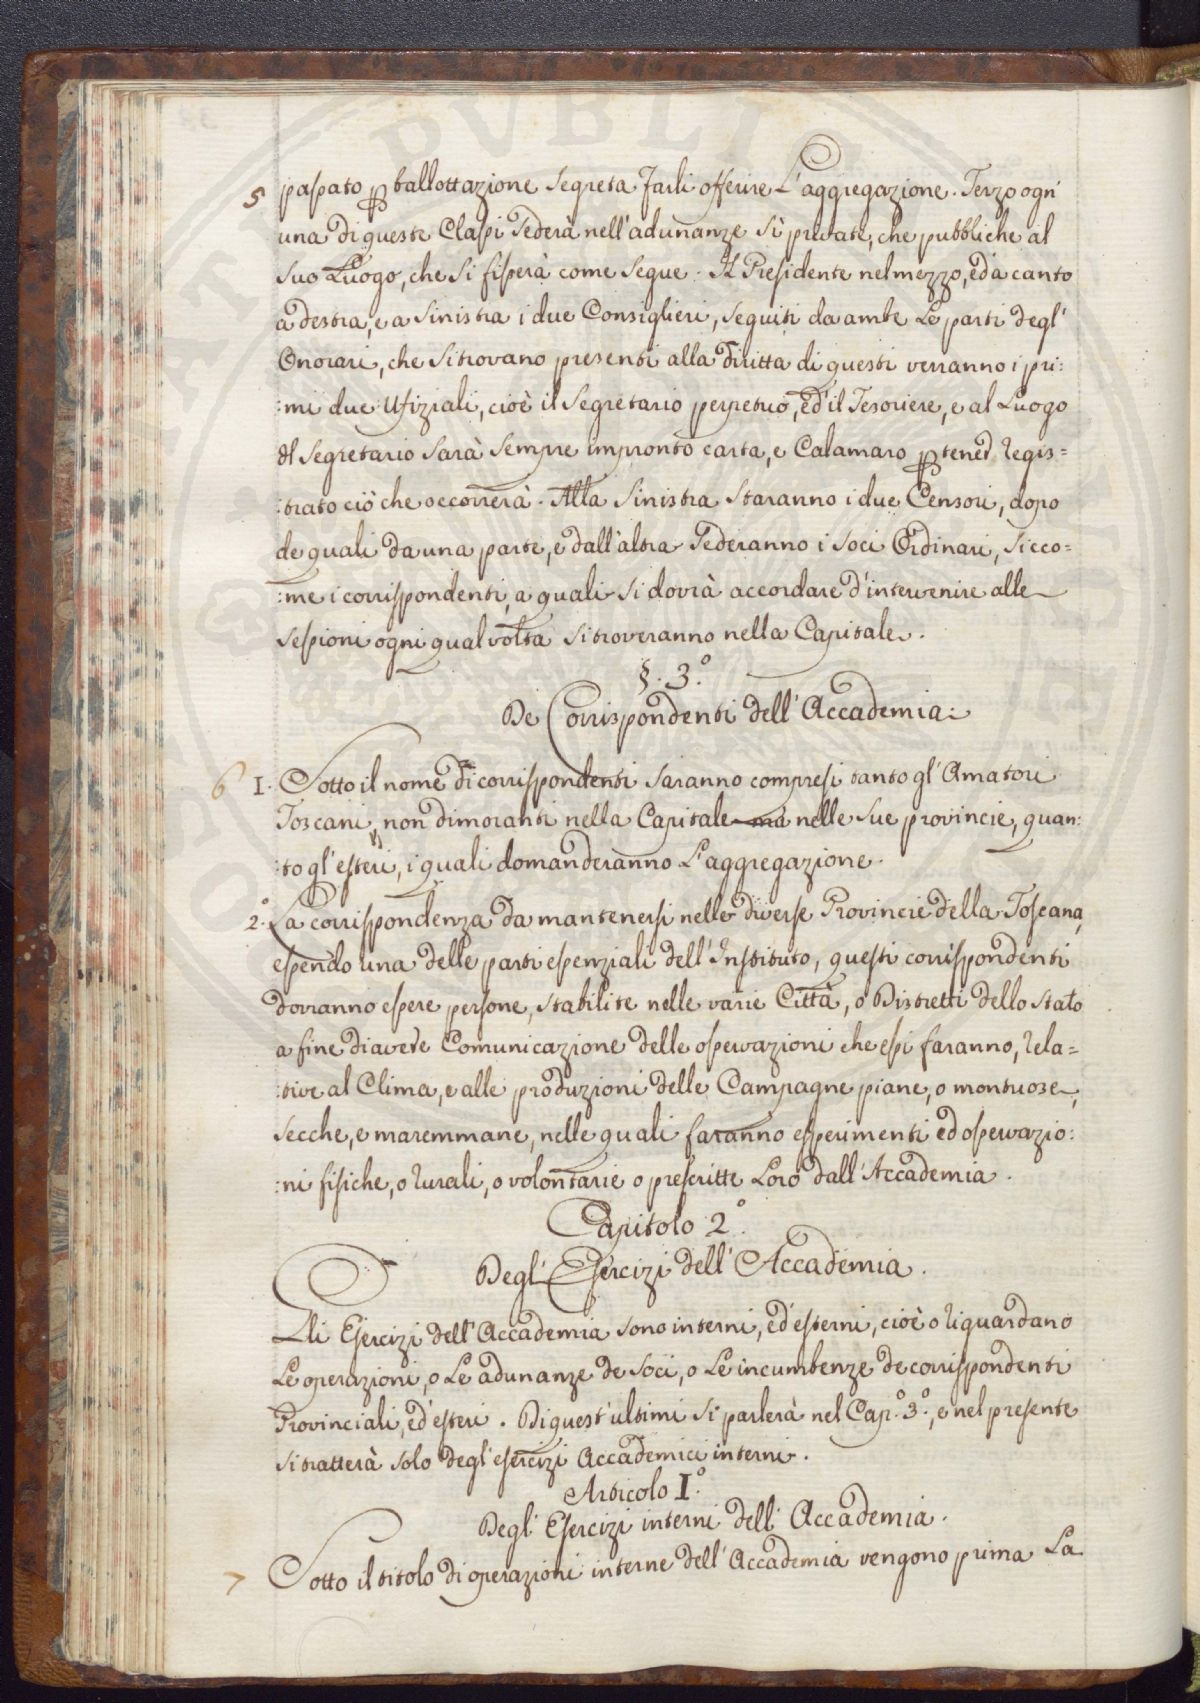 5 passato p ballottazione segreta farli offerire L'aggregazione. Terzo ogn'
una di queste Classi sederà nell'adunanze sì private, che pubbliche al
suo Luogo, che si fisserà come segue. Il Presidente nel mezzo, ed a canto
a destra, e a sinistra i due Consiglieri, seguiti da ambe Le parti degl'
Onorari, che si trovano presenti alla diritta di questi verranno i pri:
:mi due Ufiziali, cioè il Segretario perpetuo, ed il Tesoriere, e al Luogo
del Segretario sarà sempre impronto carta, e Calamaro p tener Regis=
:trato ciò che occorrerà. Alla sinistra staranno i due Censori, dopo
de quali da una parte, e dall'altra sederanno i Soci Ordinari, sicco=
:me i corrispondenti, a quali si dovrà accordare d'intervenire alle
sessioni ogni qual volta si troveranno nella Capitale.
§. 3.º
De Corrispondenti dell'Accademia:
6 I. Sotto il nome di corrispondenti saranno compresi tanto gl'Amatori
Toscani, non dimoranti nella Capitale ma nelle sue provincie, quan:
:to gl'esteri, i quali domanderanno L'aggregazione.
2.º La corrispondenza da mantenersi nelle diverse Provincie della Toscana,
essendo una delle parti essenziali dell'Instituto, questi corrispondenti
dovranno essere persone, stabilite nelle varie Città, o Distretti dello stato
a fine di avere Comunicazione delle osservazioni che essi faranno, rela=
:tive al Clima, e alle produzioni delle Campagne piane, o montuose,
secche, e maremmane, nelle quali faranno esperimenti ed osservazio:
:ni fisiche, o rurali, o volontarie o prescritte Loro dall'Accademia.
Capitolo 2.º
Degl'Esercizi dell'Accademia.
Gli Esercizi dell'Accademia sono interni, ed esterni, cioè o riguardano
Le operazioni, o Le adunanze de Soci, o Le incumbenze de corrispondenti
Provinciali, ed esteri. Di quest'ultimi si parlerà nel Cap.º 3.º, e nel presente
si tratterà solo degl'esercizi Accademici interni.
Articolo I.º
Degl'Esercizi interni dell'Accademia.
7 Sotto il titolo di operazioni interne dell'Accademia vengono prima La